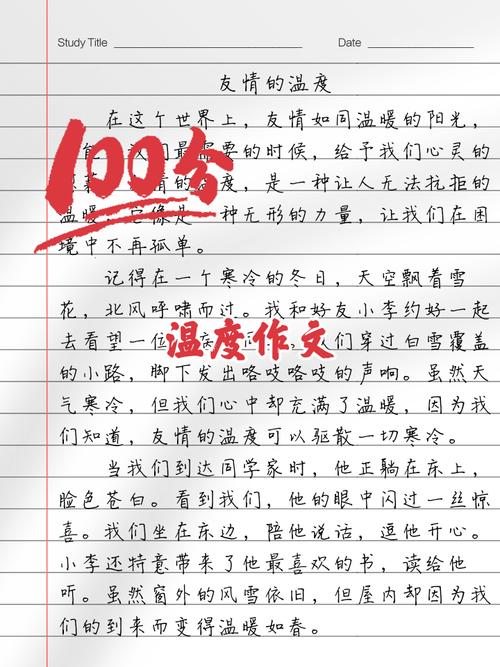 Study Title Date
友情的温度
在这个世界上，友情如同温暖的阳光，
能 我们最需要的时候，给予我们心灵的
情的温度，是一种让人无法抗拒的
温暖。它像是一种无形的力量，让我们在困
境中不再孤单。
100分
记得在一个寒冷的冬日，天空飘着雪
花，北风呼啸而过。我和好友小李约好一起
去看望一位 们穿过白雪覆盖
温度作文
的小路，脚下发出咯吱咯吱的声响。虽然天
气寒冷，但我们心中却充满了温暖，因为我
们知道，友情的温度可以驱散一切寒冷。
当我们到达同学家时，他正躺在床上，
脸色苍白。看到我们，他的眼中闪过一丝惊
喜。我们坐在床边，陪他说话，逗他开心。
小李还特意带来了他最喜欢的书，读给他
听。虽然窗外的风雪依旧，但屋内却因为我
们的到来而变得温暖如春。